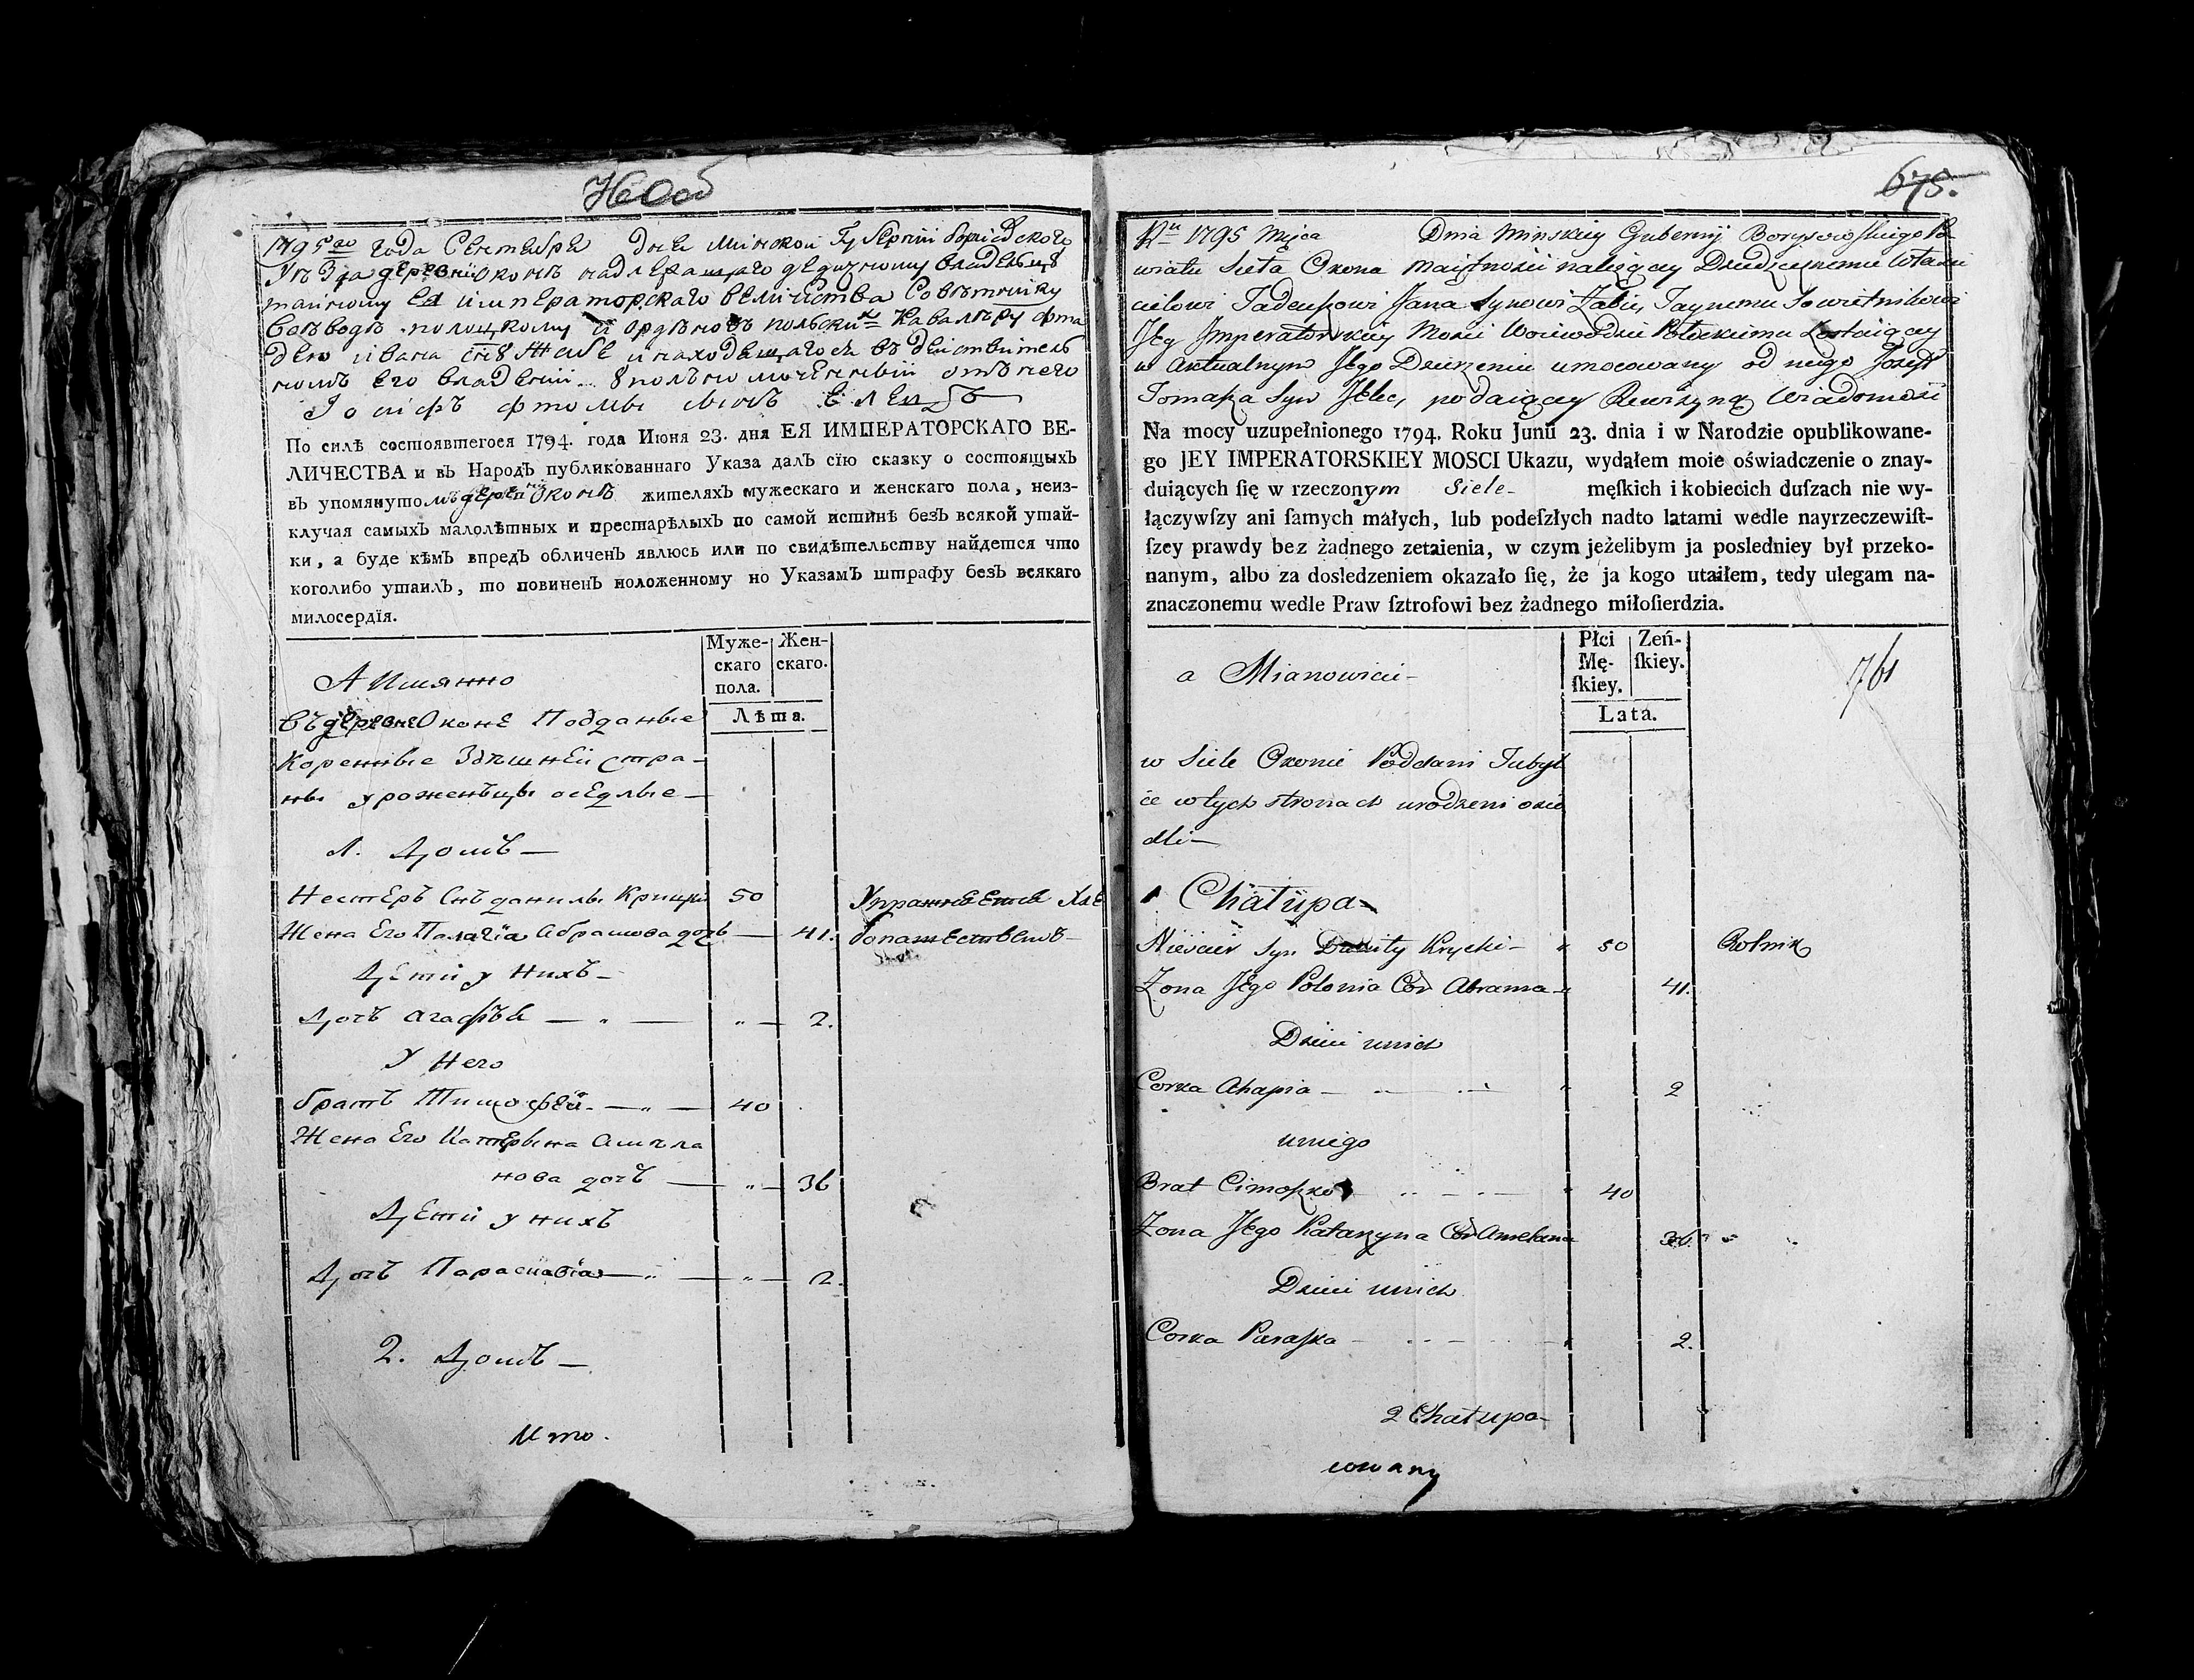 1795го года Сентября дня Минской Губернии Борисовского
уезда деревни Оконъ надлежащаго дедизному владельцу
тайному Ея Императорскаго Величества Советнику
воеводе полоцкому и орденовъ польски Кавалеру Фта
дею Ивана сну Жабе и находещагося въ действитель
номъ его владении уполъномоченный отъ него
Іосифъ Фтомы сынъ Елецъ
По силѣ состоявшегося 1794. года Июня 23. дня ЕЯ ИМПЕРАТОРСКАГО ВЕ-
ЛИЧЕСТВА и въ Народъ публикованнаго Указа далъ сїю сказку о состоящыхъ
въ упомянутомъ деревни Оконѣ жителяхъ мужескаго и женскаго пола, неиз-
ключая самыхъ малолѣтныхъ и престарѣлыхъ по самой истинѣ безъ всякой утай-
ки, а буде кѣмъ впредь обличенъ явлюсь или по свидѣтельству найдется что
коголибо утаилъ, то повиненъ положенному по Указамъ штрафу безъ всякаго
милосердїя.
Муже- Жен-
скаго скаго.
пола.
А Имянно
Лѣта.
Въ деревне Оконе Подданые
Коренные Здешней стра-
ны уроженъцы оседлые
1. Домъ
Нестеръ Снъ данилы Крицки 50 Упражняется Хле
Жена Его Палагїа Абрамова дочь 41. бопашествомъ
Дети у Нихъ
Дочь Агафья 2.
У Него
братъ Тимофей 40
Жена Его Катерына Амеля
нова дочь 36
Дети у нихъ
Дочь Параскавїа 2.
2. Домъ
Имо.
675.
Ru 1795 Mięca Dnia Minskiey Gubernij Borysowskiego Po
wiatu Sieła Okona Maiętnosci należącey Dziedzicznemu Własci
cielowi Tadeuszowi Jana Synowi Żabie, Taynemu Sowietnikowi
Jey Imperatorskiey Mosci Woiewodzie Połockiemu Zostaiącey
w Aktualnym Jego Dzierzeniu umocowany od niego Jozef
Tomasza Syn Jelec, podaiący Rewizyną Wiadomość
Na mocy uzupełnionego 1794. Roku Junii 23. dnia i w Narodzie opublikowane-
go JEY IMPERATORSKIEY MOSCI Ukazu, wydałem moie oświadczenie o znay-
duiących ſię w rzeczonym Siele męſkich i kobiecich duſzach nie wy-
łączywſzy ani ſamych małych, lub podeſzłych nadto latami wedle nayrzeczewiſt-
ſzey prawdy bez żadnego zetaienia, w czym jeżelibym ja posledniey był przeko-
nanym, albo za dosledzeniem okazało ſię, że ja kogo utaiłem, tedy ulegam na-
znaczonemu wedle Praw ſztrofowi bez żadnego miłoſierdzia.
Płci Zeń-
Mę- ſkiey.
ſkiey.
a Mianowicie
761
Lata.
w Siele Okonie Poddani Tubyl
ce w tych stronach urodzeni osie
dli
1 Chałupa
Niescier Syn Daniły Krycki 50 Rolnik
Zona Jego Polonia Cor Abrama 41.
Dzieci unich
Corka Ahapia 2
uniego
Brat Cimoszko 40
Zona Jego Katarzyna Cor Amelana 36.
Dzieci unich
Corka Paraska 2.
2 Chałupa
cowany